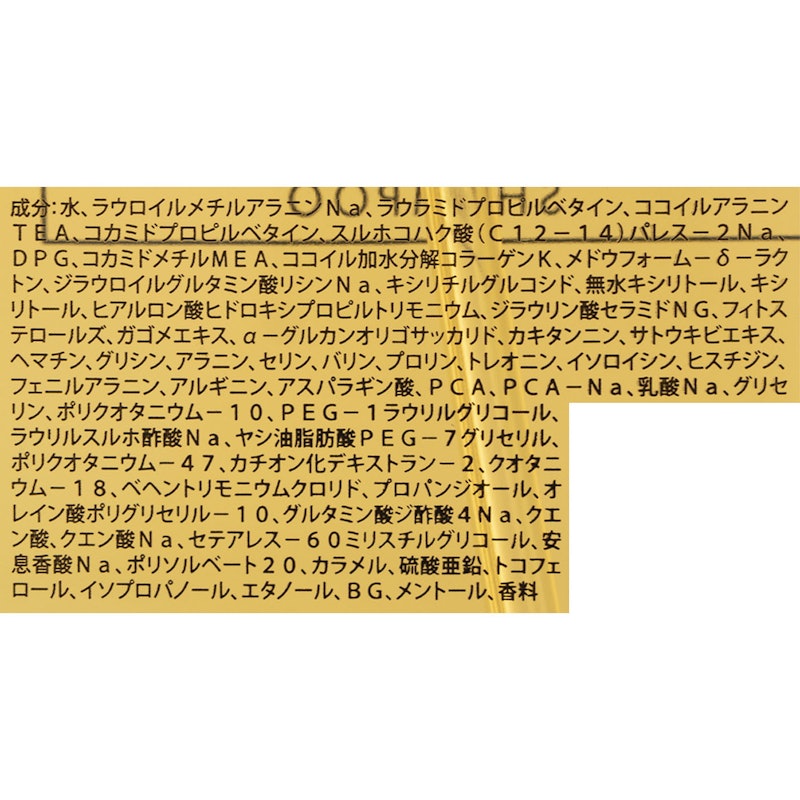 SHAMPOO
成分:水、ラウロイルメチルアラニンNa、ラウラミドプロピルベタイン、ココイルアラニン
TEA、コカミドプロピルベタイン、スルホコハク酸(C12-14)パレス-2Na、
DPG、コカミドメチルMEA、ココイル加水分解コラーゲンK、メドウフォーム-δ-ラク
トン、ジラウロイルグルタミン酸リシンNa、キシリチルグルコシド、無水キシリトール、キシ
リトール、ヒアルロン酸ヒドロキシプロピルトリモニウム、ジラウリン酸セラミドNG、フィトス
テロールズ、ガゴメエキス、α-グルカンオリゴサッカリド、カキタンニン、サトウキビエキス、
ヘマチン、グリシン、アラニン、セリン、バリン、プロリン、トレオニン、イソロイシン、ヒスチジン、
フェニルアラニン、アルギニン、アスパラギン酸、PCA、PCA-Na、乳酸Na、グリセ
リン、ポリクオタニウム-10、PEG-1ラウリルグリコール、
ラウリルスルホ酢酸Na、ヤシ油脂肪酸PEG-7グリセリル、
ポリクオタニウム-47、カチオン化デキストラン-2、クオタニ
ウム-18、ベヘントリモニウムクロリド、プロパンジオール、オ
レイン酸ポリグリセリル-10、グルタミン酸ジ酢酸4Na、クエ
ン酸、クエン酸Na、セテアレス-60ミリスチルグリコール、安
息香酸Na、ポリソルベート20、カラメル、硫酸亜鉛、トコフェ
ロール、イソプロパノール、エタノール、BG、メントール、香料